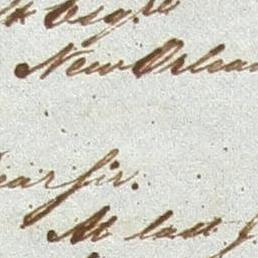 Esqre
New Orlean
ear Sir.
At last I